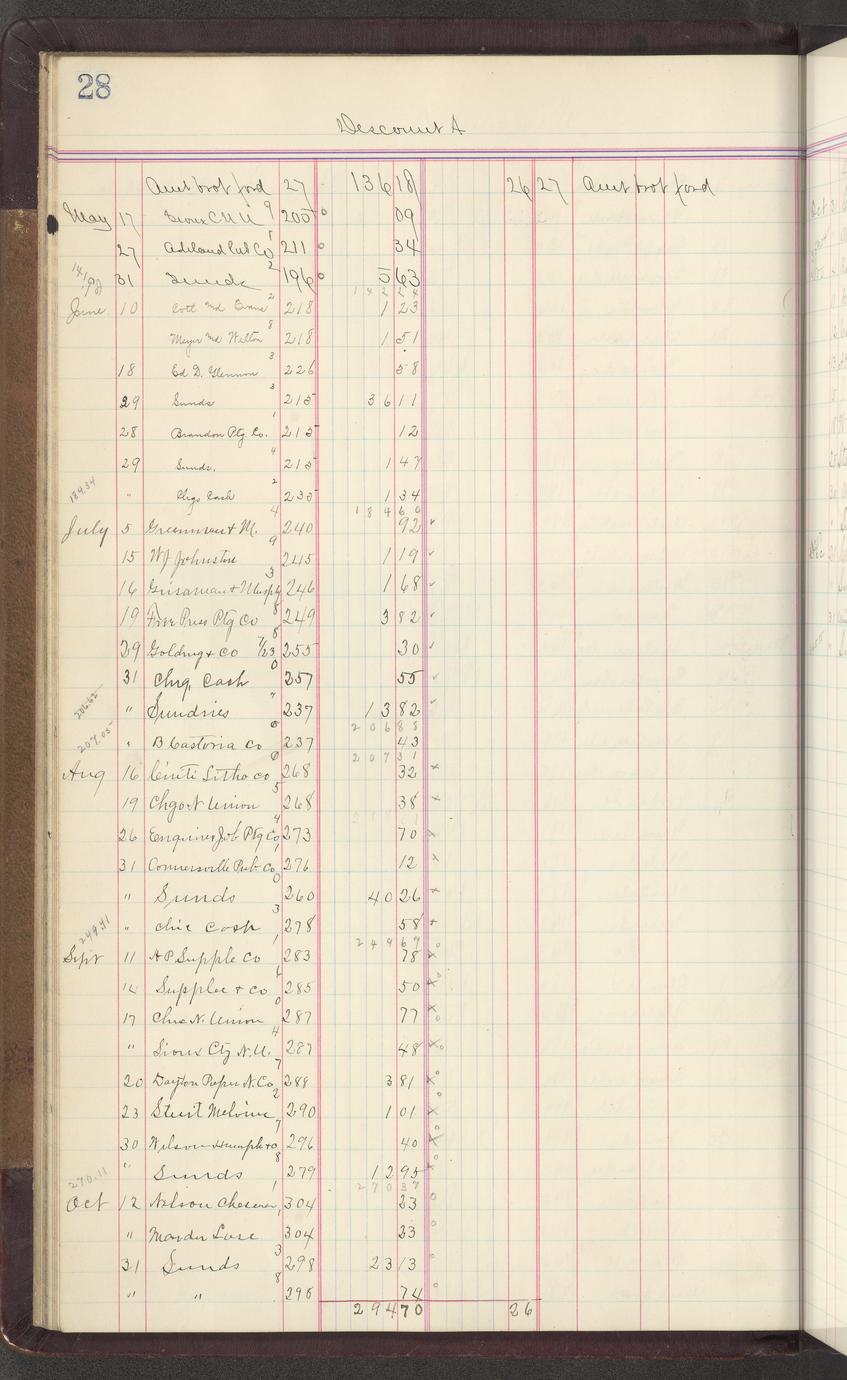 28
Descount A
Amt brot ford 27 136 18 26 27 Amt brot ford
May 17 Sioux C N U 9 205 09
27 Ashland Pub Co 1 211 34
14192 31 Sunds 2 196 5 63
142 24
June 10 Cott and Evans 2 218 1 23
Meyer and Wilton 8 218 1 51
18 Ed D. Glennon 3 226 58
29 Sunds 3 215 36 11
28 Brandon Ptg Co. 1 215 12
29 Sunds. 4 215 1 47
184.34 " Chgs Cash 2 235 1 34
184 60
July 5 Greenman & M. 4 240 92
15 W J Johnston 9 245 1 19
16 Grisaman & Murphy 3 246 1 68
19 Free Press Ptg Co 8 249 3 82
29 Golding & Co 7/23 8 255 30
31 Chg. Cash 0 257 55
206.62 " Sundries " 237 13 82
206 88
207.05 " B Castoria Co 6 237 43
207 31
Aug 16 Cinti Litho co 0 268 32
19 Chgo N Union 5 268 38
26 Enquirer Job Ptg Co 4 273 70
31 Connersville Pub Co 1 276 12
" Sunds 0 260 40 26
249.41 " chic Cash 3 278 58
249 67
Sept 11 A P Supple Co 1 283 78
14 Supplee & Co 6 285 50
17 Chic N. Union 0 287 77
" Sioux Cty N. U. 4 287 48
20 Dayton Paper N. Co 7 288 3 81
23 Stuit Meloine 2 290 1 01
30 Wilson Humph & Co 7 296 40
270.11 " Sunds 8 279 12 95
270 37
Oct 12 Nelson Chesman 1 304 23
" Marder Luse 304 23
31 Sunds 3 298 23 13
" " 8 298 74
294 70 26